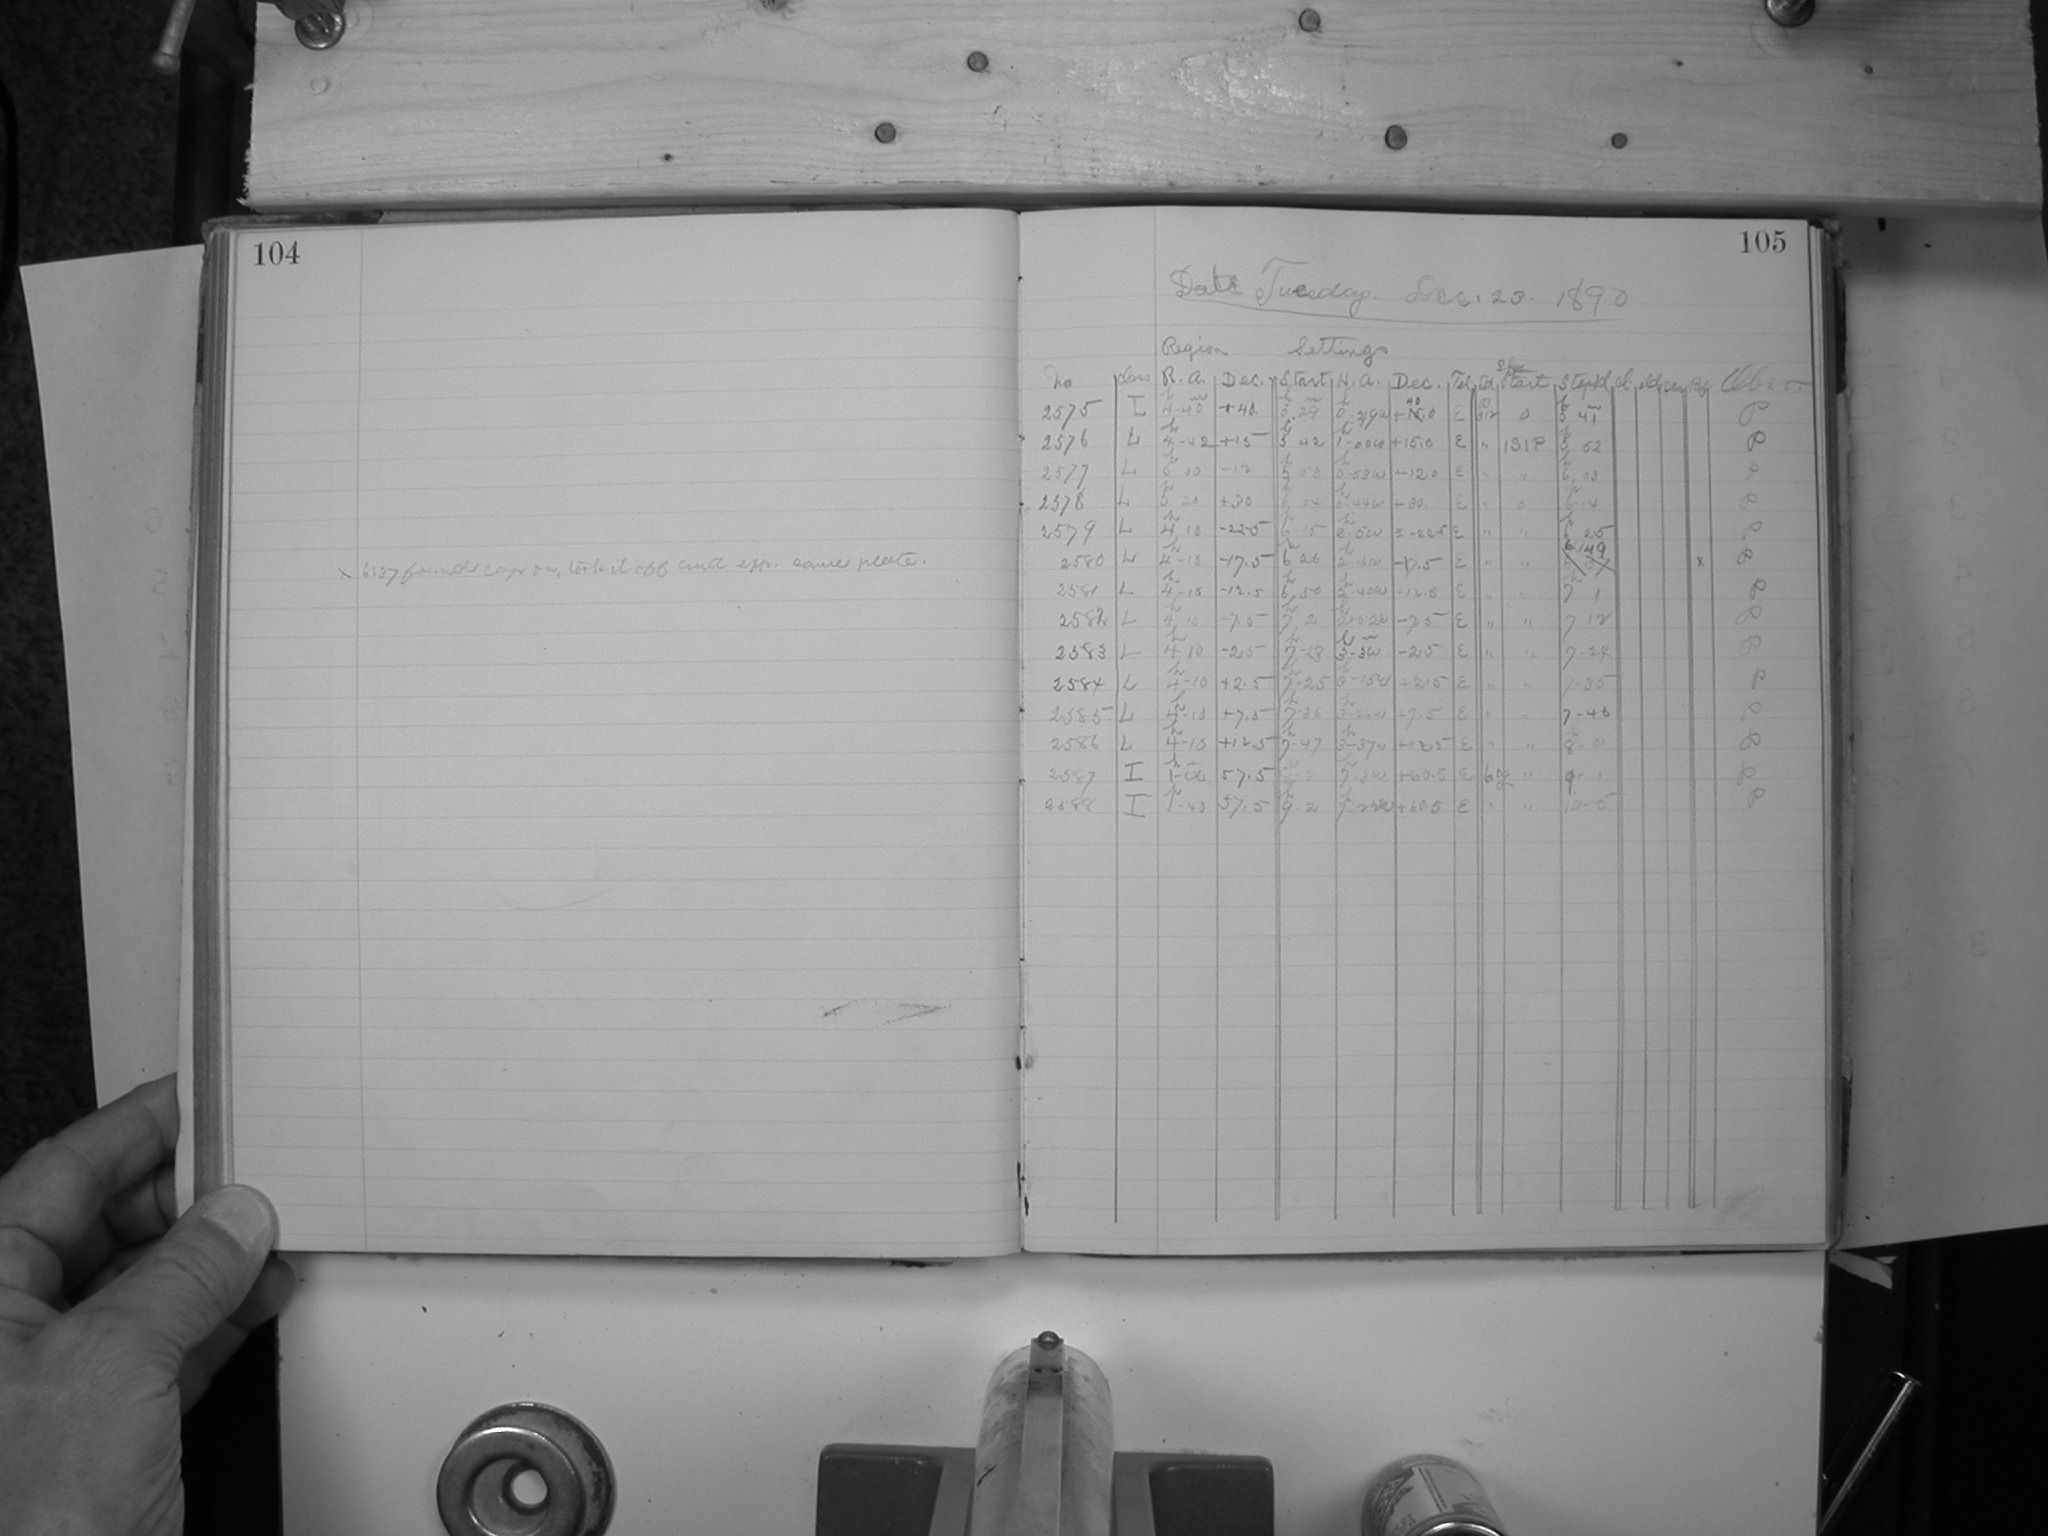 104
x 6:37 found cap on, took it off and exp. same plate.
105
Date Tuesday. Dec. 23. 1890
Region Settings
No Class R. A. Dec. Start H. A. Dec. Tel. Start Stop
2575 I 4-40 +40. 5. 29 0-49w +40 E 0 5 41
2576 L 4-42 +15 5 42 1-00w +15.0 E " 1S1P 5 52
2577 L 5 00 -12 5 53 0-53w -12.0 E " 6 03
2578 L 5 20 +30 6 04 0-44w +30. E " 6-14
2579 L 4 10 -22.5 6-15 -22.5 E " " 25
2580 L 4-10 -17.5 6 26 -17.5 E " " 6 49 x
2581 L 4-10 -12.5 6.50 2-40w -12.5 E " " 7 1
2582 L 4 10 -7.5 7 2 2-52w -7.5 E " " 7 12
2583 L 4 10 -2.5 7-13 3-3w -2.5 E " " 7-24
2584 L 4-10 +2.5 7-25 3-15w +2.5 E " " 7.35
2585 L 4-10 +7.5 7-36 3-26w +7.5 E " " 7-46
2586 L 4-10 +12.5 7-47 3-37w +12.5 E " " 8-
2587 I 57.5 +60.5 E " 9 1
2588 I 1-40 57.5 9.2 7-22w +60.5 E " " 10-5